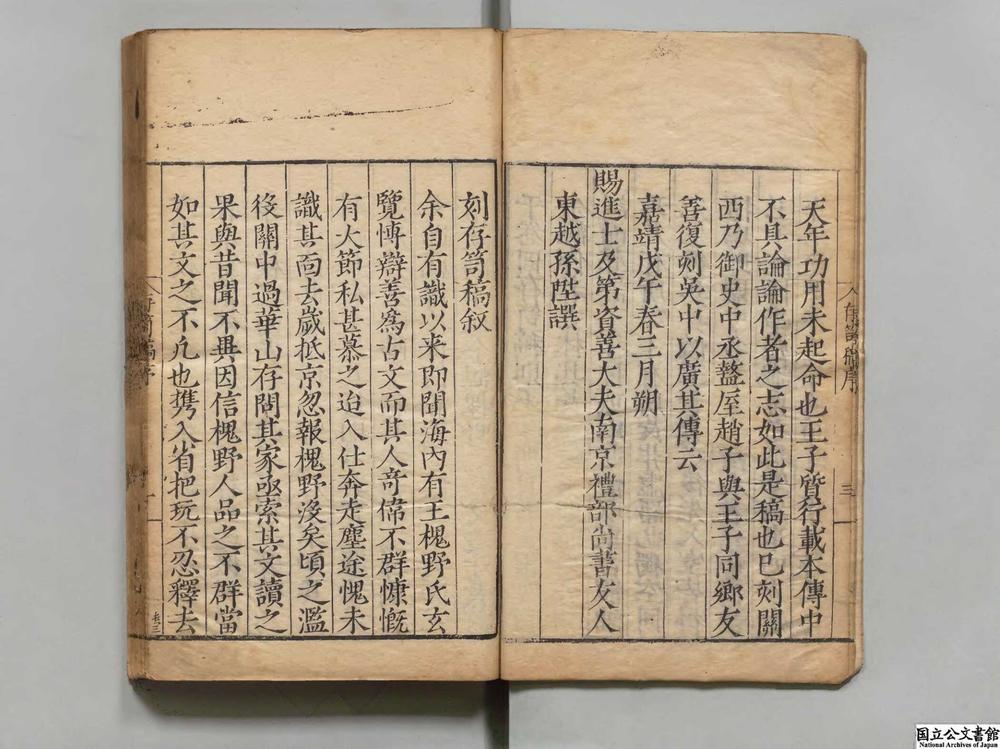 天年功用未起命也王子質行載本傳中
不具論論作者之志如此是稿也已刻關
西乃御史中丞盩厔趙子與王子同鄉友
善復刻吳中以廣其傳云
嘉靖戊午春三月朔
賜進士及第資善大夫南京禮部尚書友人
東越孫陞譔
存笥稿序
三
刻存笥稿叙
余自有識以来即聞海內有王槐野氏玄
覽愽辯善爲古文而其人竒偉不群慷慨
有大節私甚慕之迨入仕奔走塵途愧未
識其面去歲抵京忽報槐野沒矣頃之濫
後關中過華山存問其家亟索其文讀之
果與昔聞不異因信槐野人品之不群當
如其文之不凢也擕入省把玩不忍釋去
存笥稿序
国立公文書館
National Archives of Japan